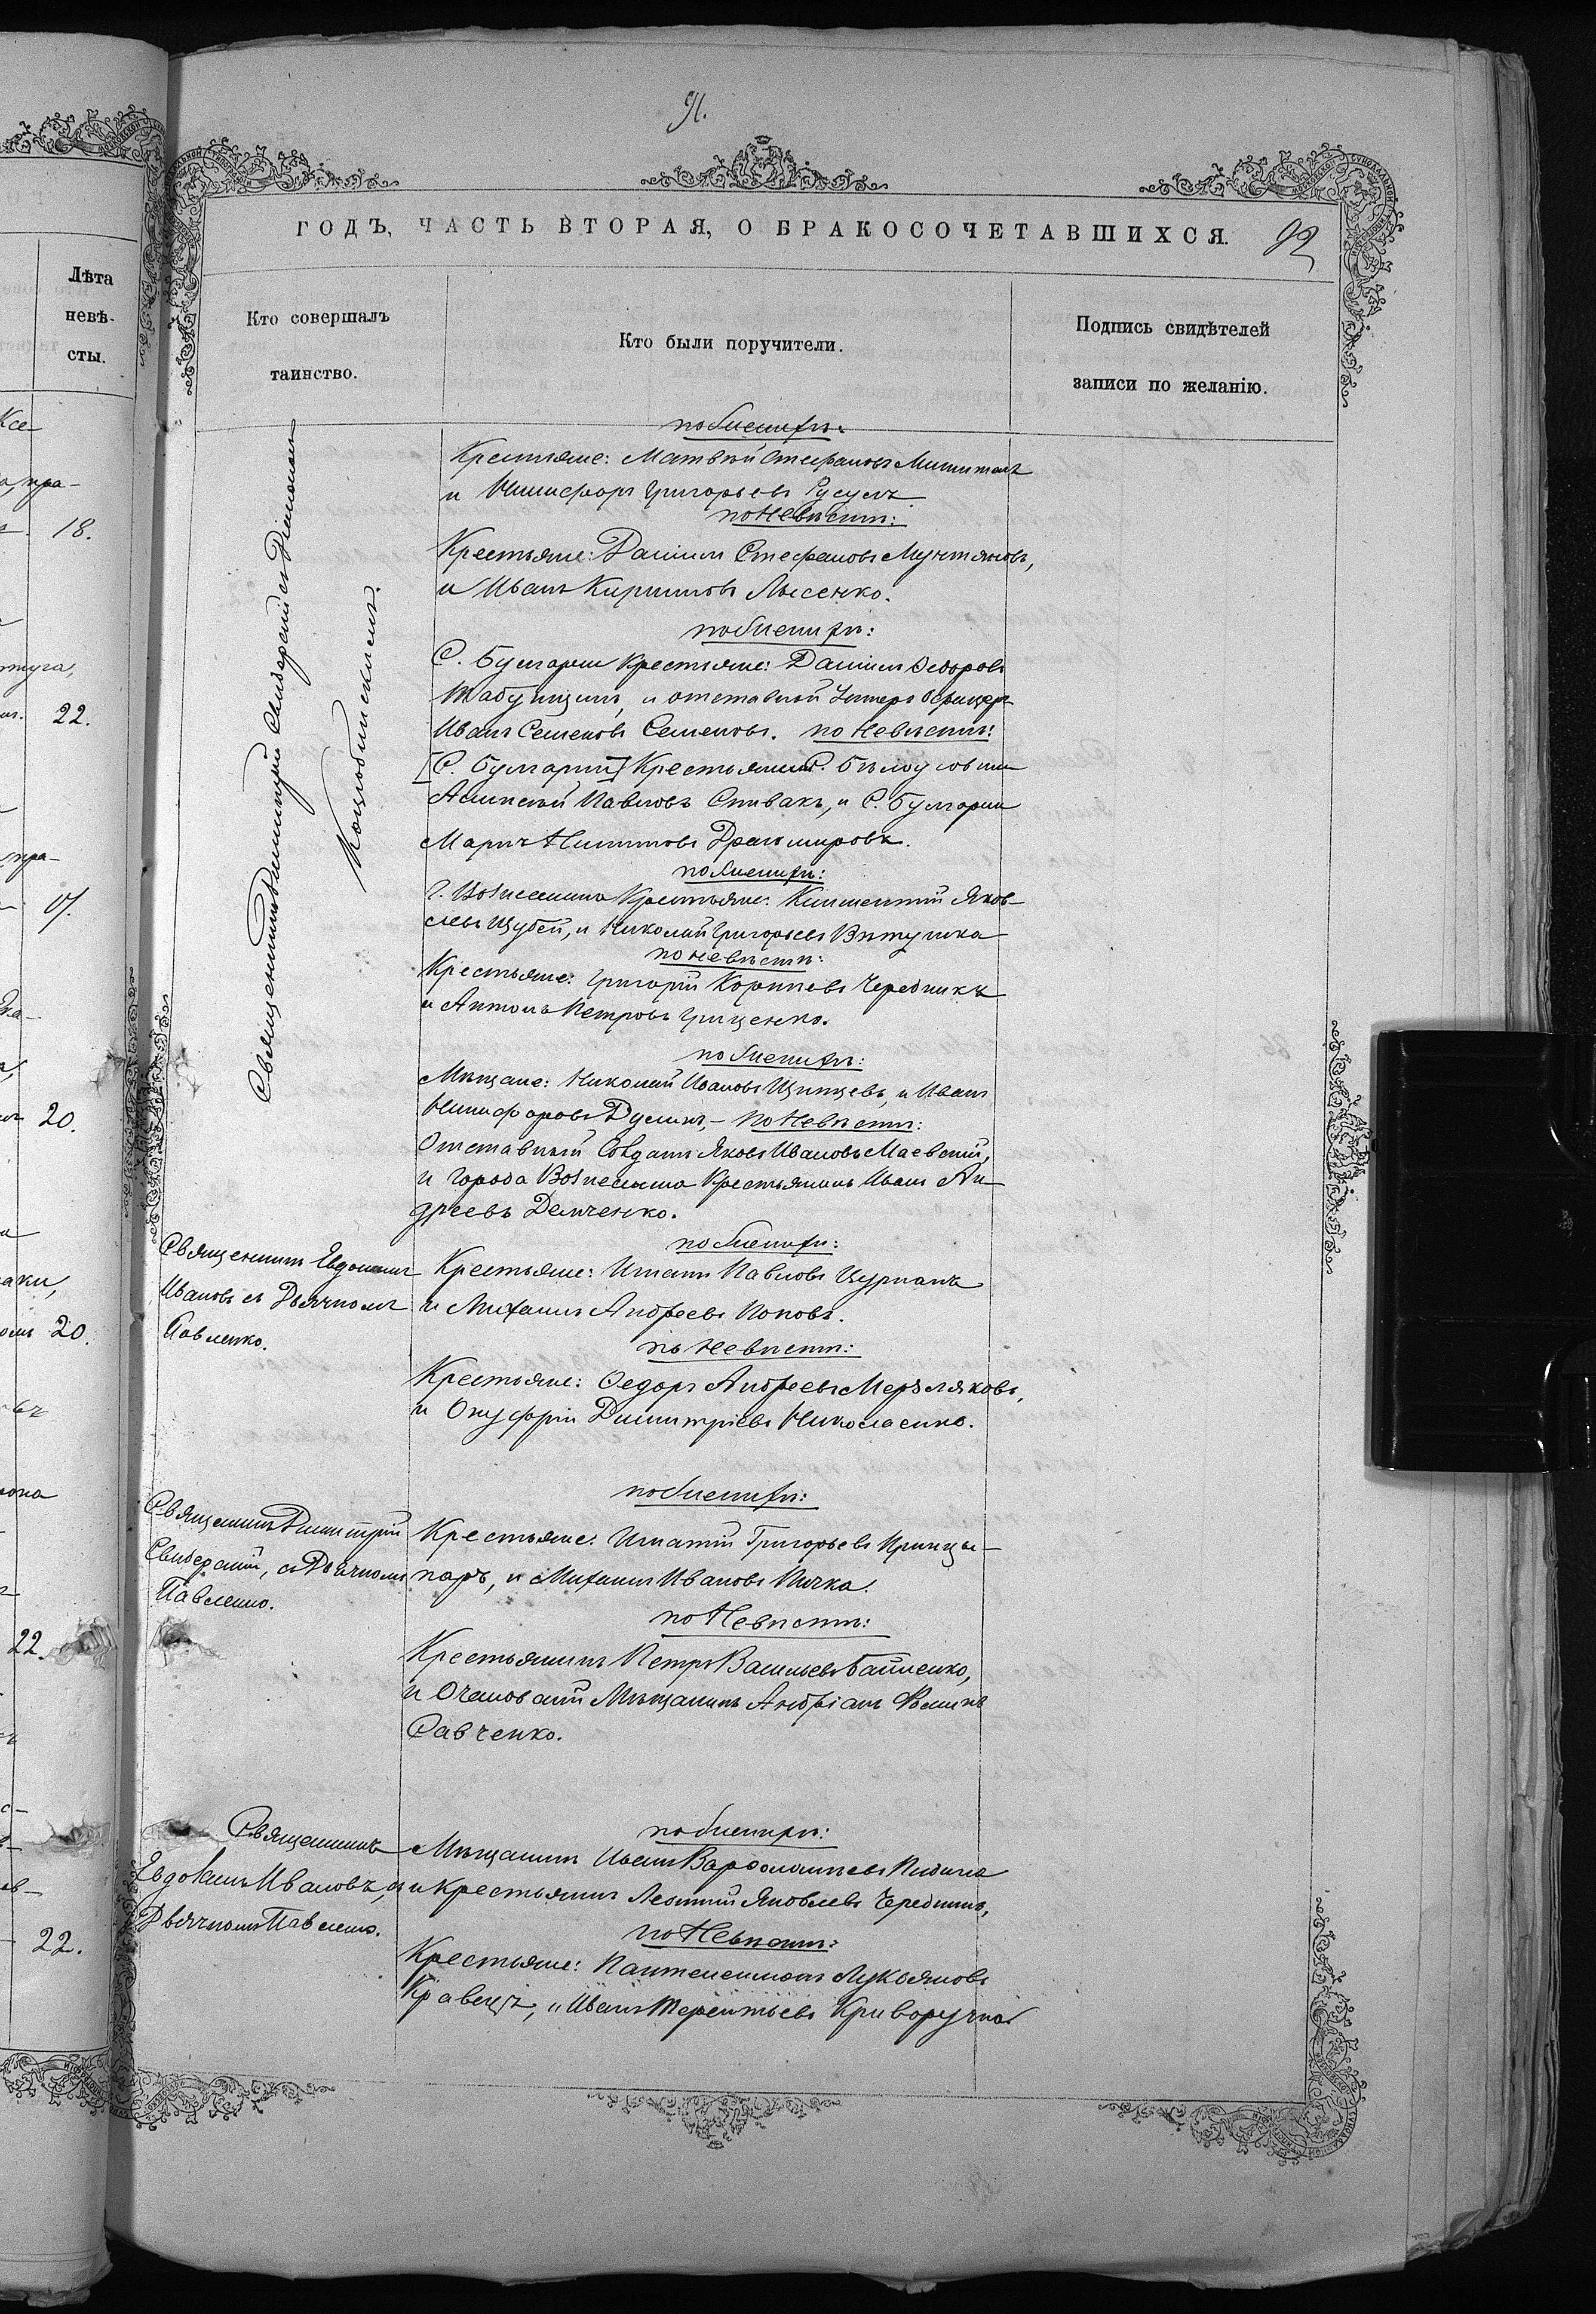 91.
ГОДЪ, ЧАСТЬ ВТОРАЯ, О БРАКОСОЧЕТАВШИХСЯ.
92
Лѣта
невѣ-
сты.
Кто совершалъ
таинство.
Кто были поручители.
Подпись свидѣтелей
записи по желанію.
18.
22.
20.
20.
22.
22.
Священникъ Димитрій
по женихѣ:
Крестьяне: Матвѣй Стефановъ
и Никифоръ Григорьевъ Русулъ
по невѣстѣ:
Крестьяне: Даніилъ Стефановъ Мунтяновъ,
и Иванъ Кирилловъ Лысенко.
по женихѣ:
С. Булгарки Крестьяне: Даніилъ Ѳедоровъ
Табунщикъ, и отставной Унтеръ Офицеръ
Иванъ Семеновъ Семеновъ. по невѣстѣ:
[С. Булгарки] Крестьяне С. Бѣлоусовки
Алексѣй Павловъ Спивакъ, и С. Булгарки
по женихѣ:
Г. Вознесенска Крестьяне: Климентій Яков-
левъ Щубей, и Николай Григорьевъ
по невѣстѣ:
Крестьяне: Григорій Корнѣевъ Чередникъ
и Антонъ Петровъ Гриценко.
по женихѣ:
Мѣщане: Николай Ивановъ и Иванъ
Никифоровъ – по невѣстѣ:
Отставный Солдатъ Яковъ Ивановъ Маевскій,
и города Вознесенска Крестьянинъ Иванъ Ан-
дреевъ Демченко.
Священникъ Евдокимъ
Ивановъ съ Дьячкомъ
Павленко.
по женихѣ:
Крестьяне: Игнатъ Павловъ Цурканъ
и Михаилъ Андреевъ Поповъ.
по невѣстѣ:
Крестьяне: Ѳедоръ Андреевъ Мерзляковъ,
и Онуфрій Димитріевъ Николаенко.
Священникъ Димитрій
съ Дьячкомъ
Павленко.
по женихѣ:
Крестьяне: Игнатій Григорьевъ
и Михаилъ Ивановъ Пичка.
по невѣстѣ:
Крестьянинъ Петръ Васильевъ
и Очаковскій Мѣщанинъ Андріанъ Ѳоминъ
Савченко.
Священникъ
Евдокимъ Ивановъ, съ
Дьячкомъ Павленко.
по женихѣ:
Мѣщанинъ Иванъ Варѳоломѣевъ
и Крестьянинъ Леонтій Яковлевъ Чередникъ,
по невѣстѣ:
Крестьяне: Пантелеимонъ Лукьяновъ
Кравецъ, и Иванъ Терентьевъ Криворучко